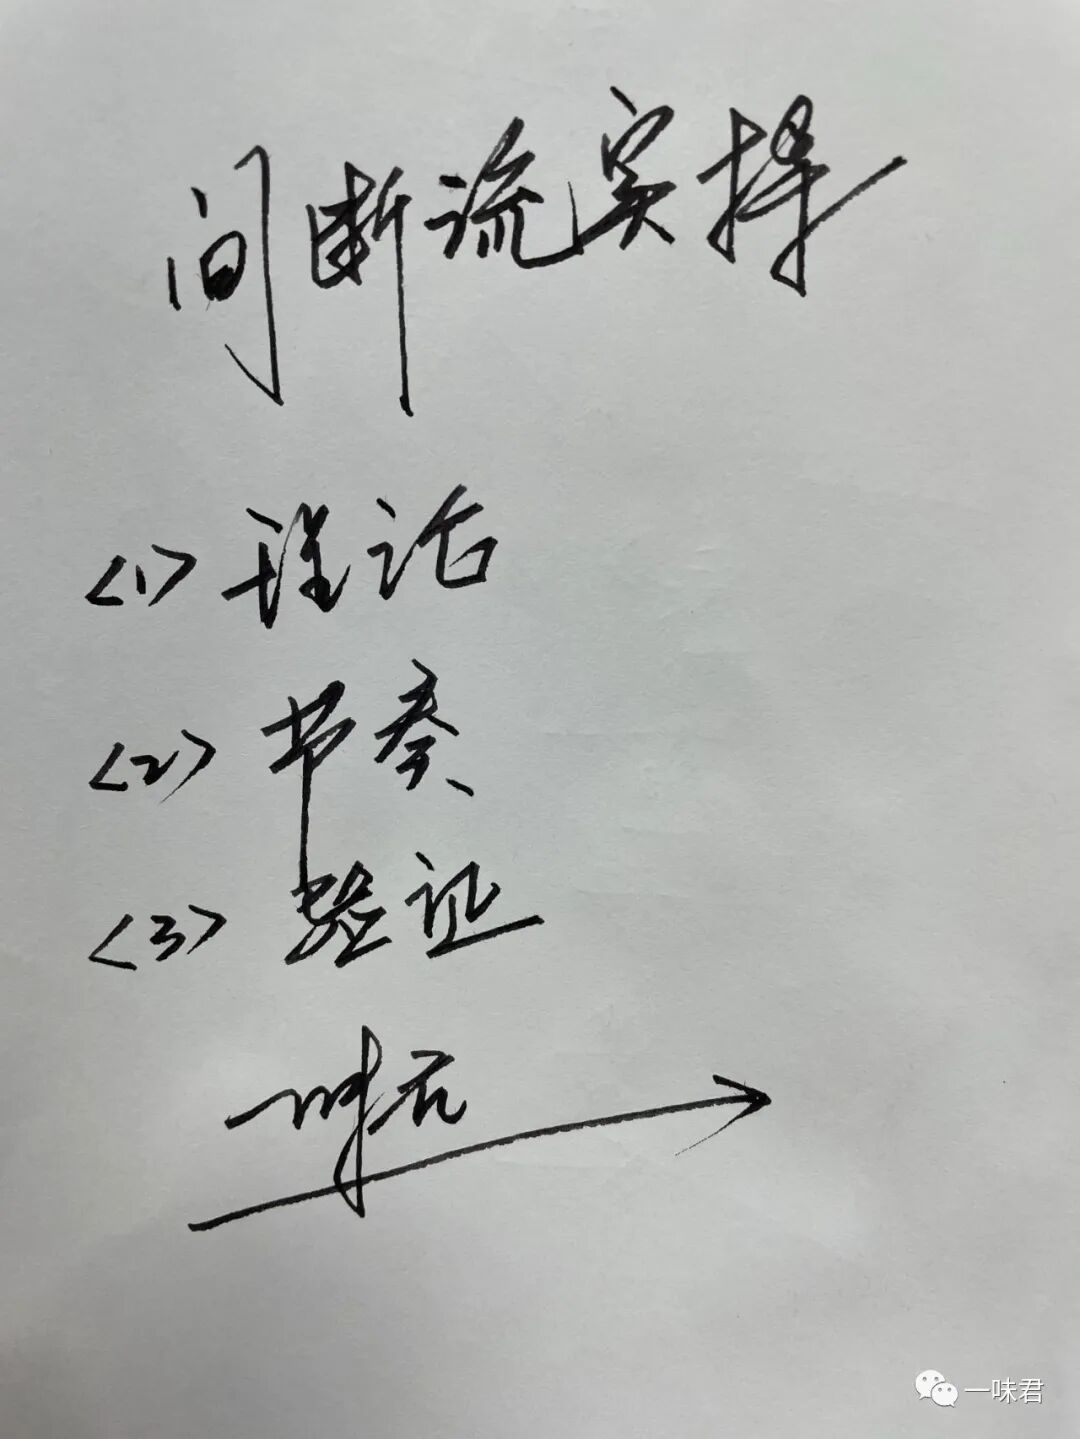 间断流实操
<1>理论
<2>节奏
<3>验证
一味君
一味君